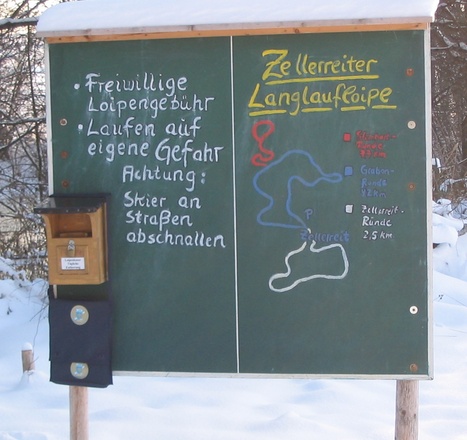 • Freiwillige
Loipengebühr
• Laufen auf
eigene Gefahr
Achtung:
Skier an
Straßen
abschnallen
Zellerreiter
Langlaufloipe
Runde
P
Zellerreit
Zellerreit-
Runde
2,5 km